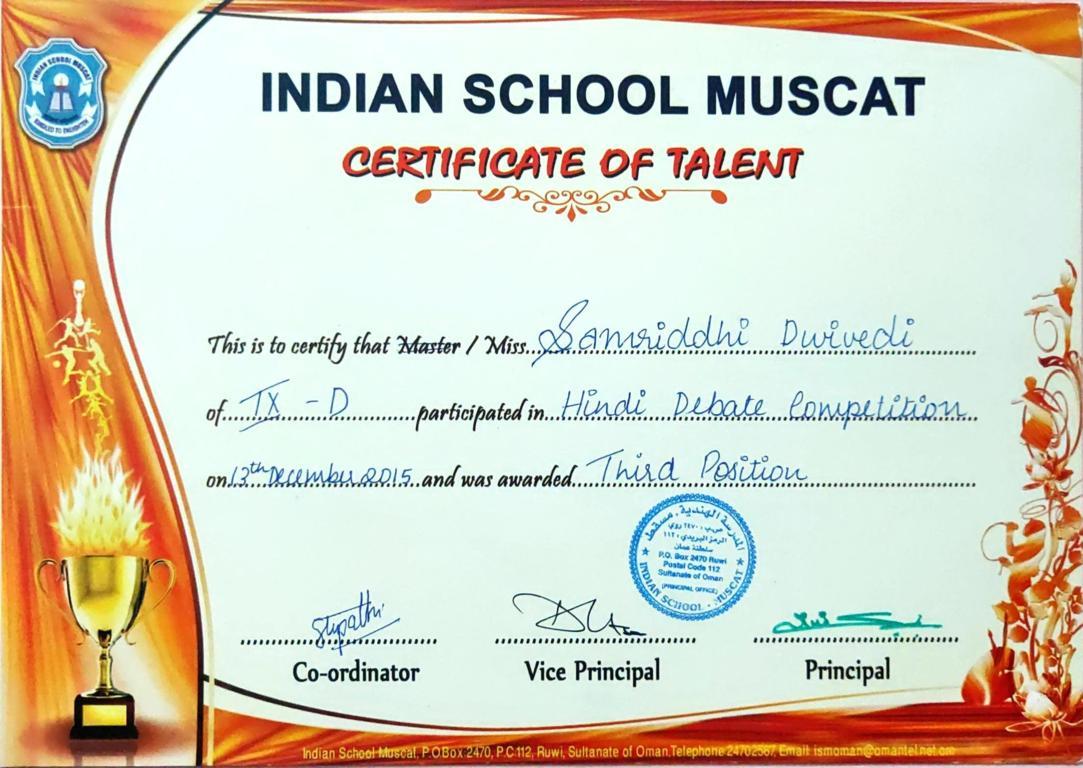 INDIAN SCHOOL MUSCAT
KINDLED TO ENLIGHTEN
INDIAN SCHOOL MUSCAT
CERTIFICATE OF TALENT
This is to certify that Master / Miss Samriddhi Dwivedi
of IX - D participated in Hindi Debate Competition
on 13th December 2015 and was awarded Third Position
المدرسة الهندية . مسقط
ص.ب ٢٤٧٠ روي
الرمز البريدي ١١٢
سلطنة عمان
P.O. Box 2470 Ruwi
Postal Code 112
Sultanate of Oman
(PRINCIPAL OFFICE)
INDIAN SCHOOL . MUSCAT
Co-ordinator Vice Principal Principal
Indian School Muscat, P.O Box 2470, P.C 112, Ruwi, Sultanate of Oman.Telephone 24702567, Email: ismoman@omantel.net.om